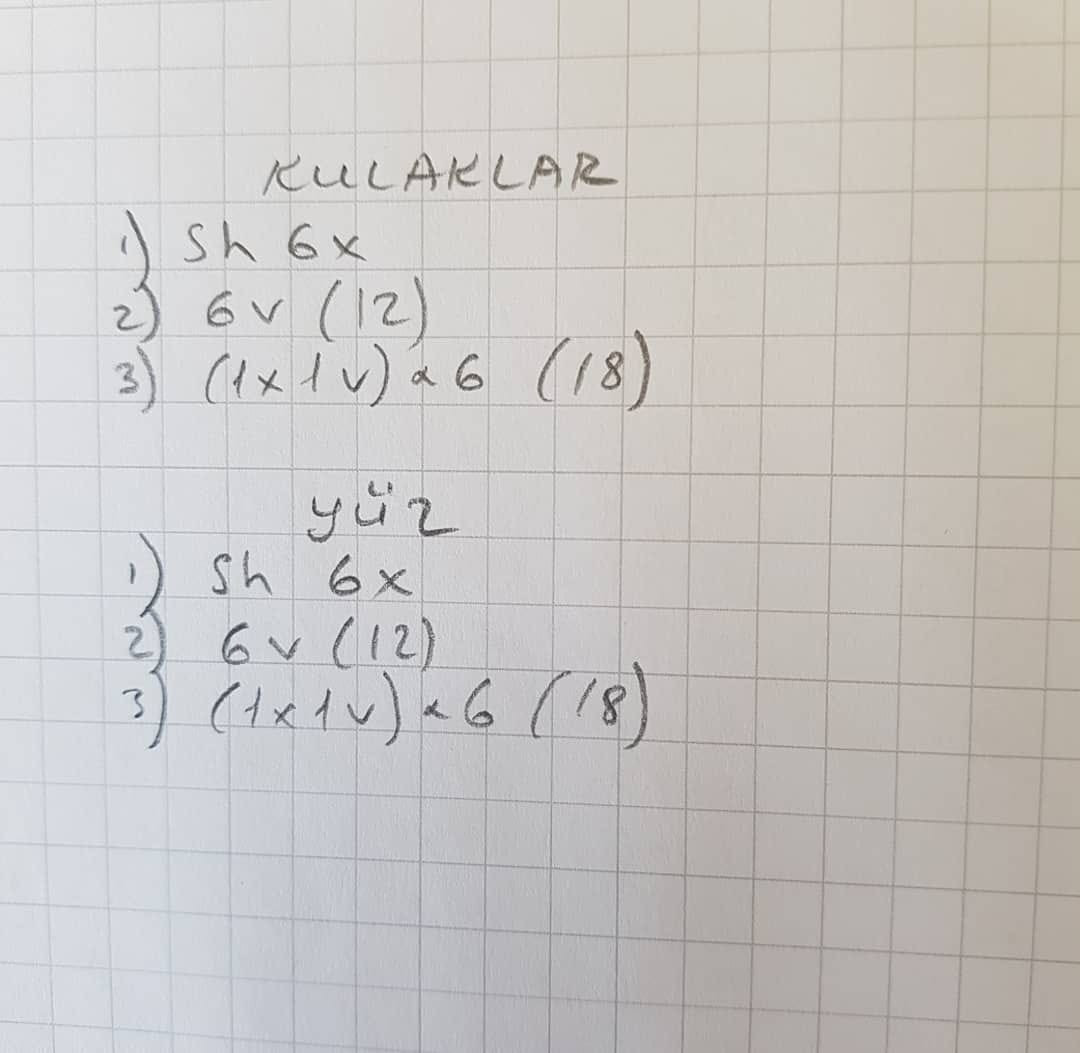 KULAKLAR
1) Sh 6x
2) 6v (12)
3) (1x1v) x 6 (18)
yüz
1) Sh 6x
2) 6v (12)
3) (1x1v) x 6 (18)